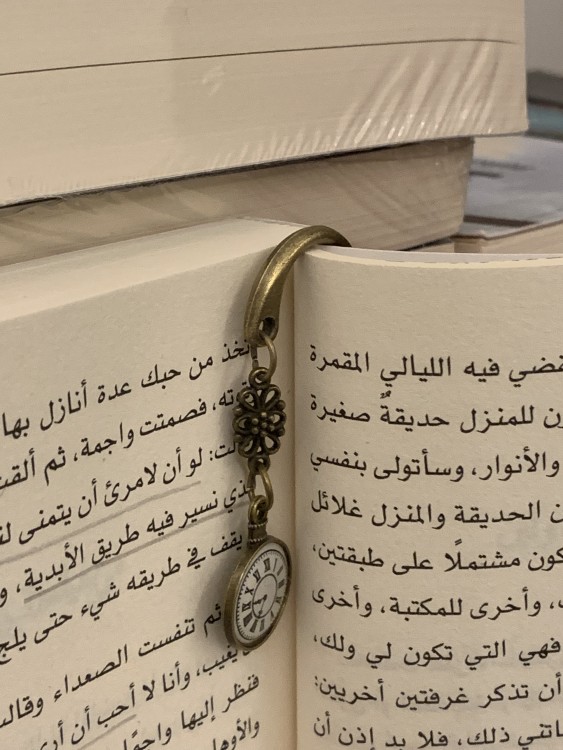 قضي فيه الليالي المقمرة
للمنزل حديقةٌ صغيرة
والأنوار، وسأتولى بنفسي
الحديقة والمنزل غلائل
كون مشتملًا على طبقتين،
وأخرى للمكتبة، وأخرى
فهي التي تكون لي ولك،
أن تذكر غرفتين أخريين:
ذلك، فلا بد إذن أن
من حبك عدة أنازل بها
فصمتت واجمة، ثم
لو أن لامرئ أن يتمنى
نسير فيه طريق الأبدية،
يقف في طريقه شيء حتى
ثم تنفست الصعداء وقالت
يغيب، وأنا لا أحب أن
فنظر إليها واجمًا